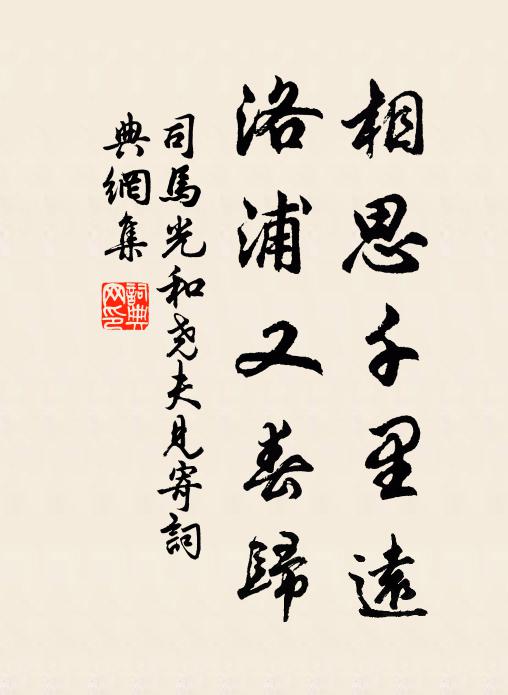 相思千里遠
洛浦又春歸
司馬光和堯夫見寄詞
典網集
詞典
网印